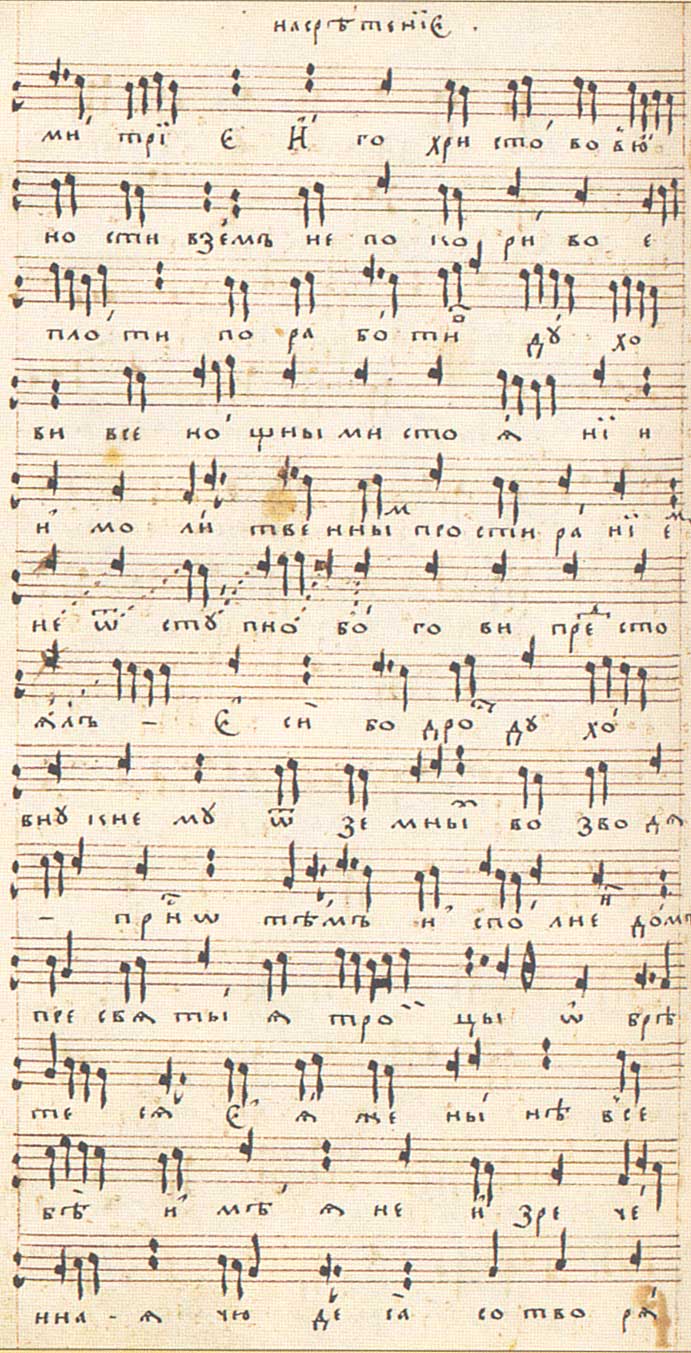 на срѣ тенїє .
ми трї є й го хри сто во вїю
но сти вземъ не по ко ри во е
пло ти по ра бо ти ду хо
ви все но щны ми сто я нї и
и мо ли тве нны про сти ра нї ем
не ѿ сту пно бо го ви пре сто
ялъ - є си бо дро ду хо
вну кне му ѿ зе мны во зво дя
- при ѡ тѣмъ и спо лне домъ
пре свя ты я тро цы ѡ брѣ
те ся є я же ны нѣ все
всѣ и мѣ я не и зре че
нна - я чю де са со тво ря